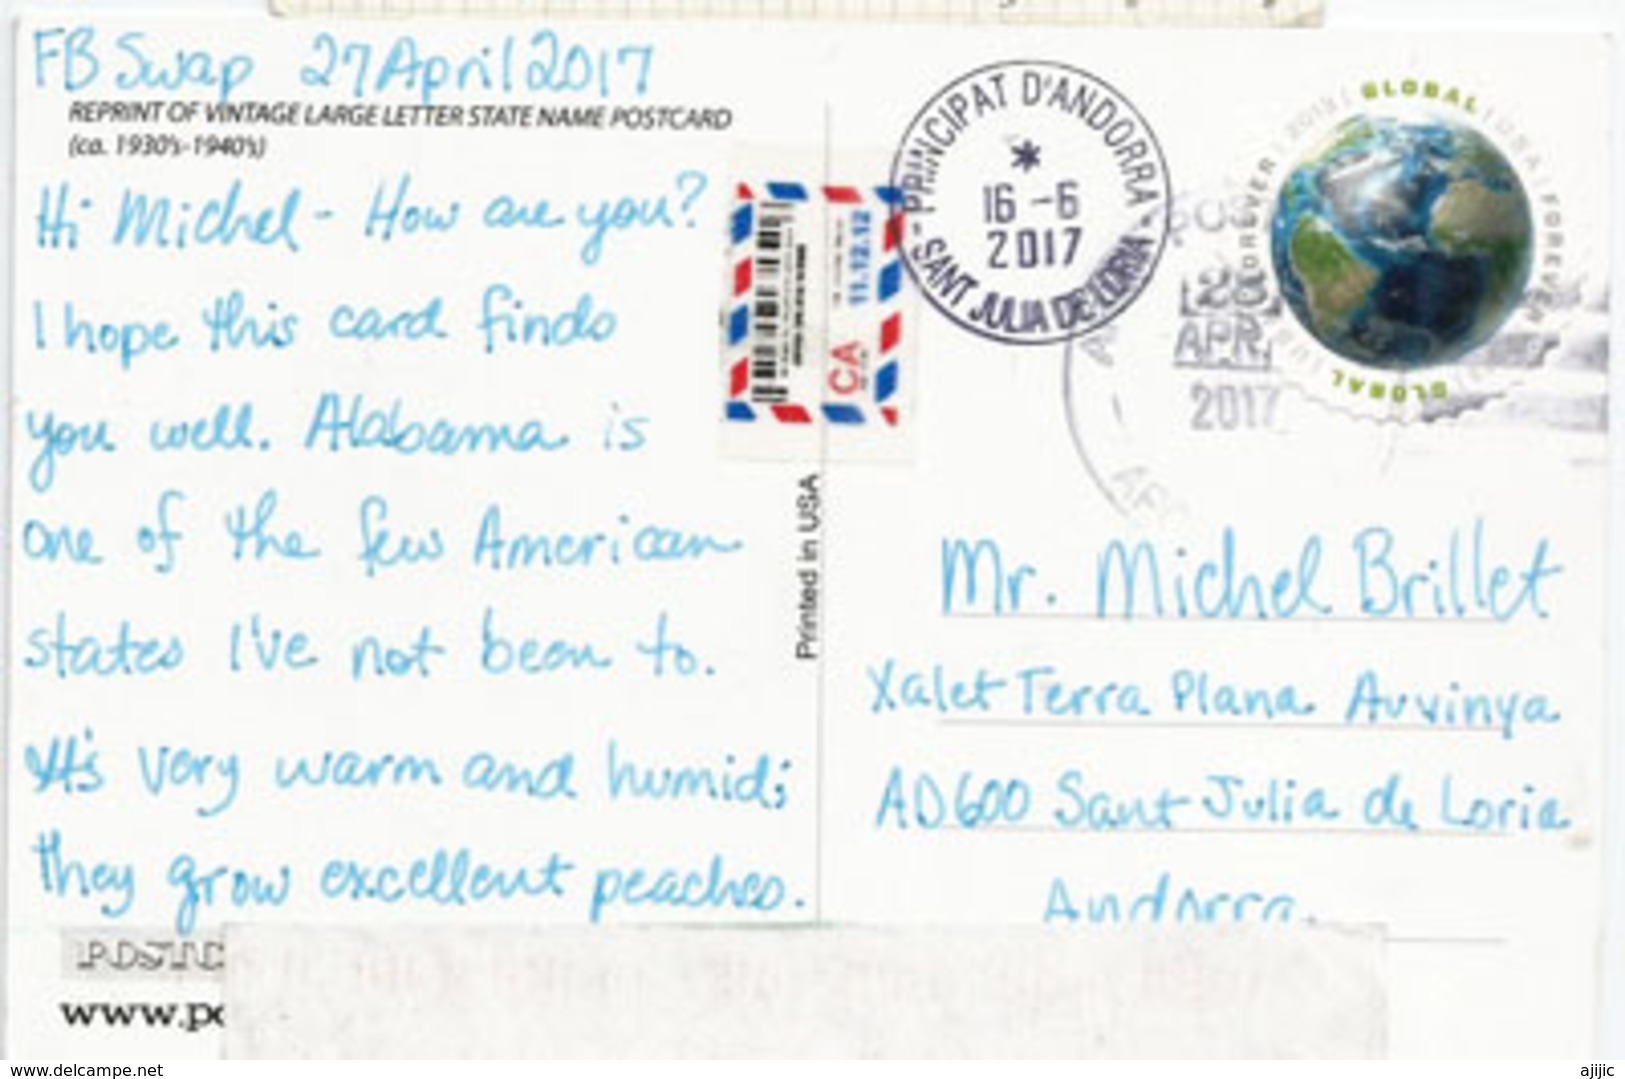 FB Swap 27 April 2017
REPRINT OF VINTAGE LARGE LETTER STATE NAME POSTCARD
(ca. 1930's-1940's)
Hi Michel - How are you?
I hope this card finds
you well. Alabama is
one of the few American
states I've not been to.
It's very warm and humid;
they grow excellent peaches.
POSTC
www.po
Printed in USA
CA
11.12.12
PRINCIPAT D'ANDORRA
*
16 -6
2017
- SANT JULIA DE LORIA -
GLOBAL | USA | FOREVER
GLOBAL
FOREVER | 2015 |
28
APR
2017
Mr. Michel Brillet
Xalet Terra Plana Auvinya
AD600 Sant Julia de Loria
Andorra
www.delcampe.net
ajijic